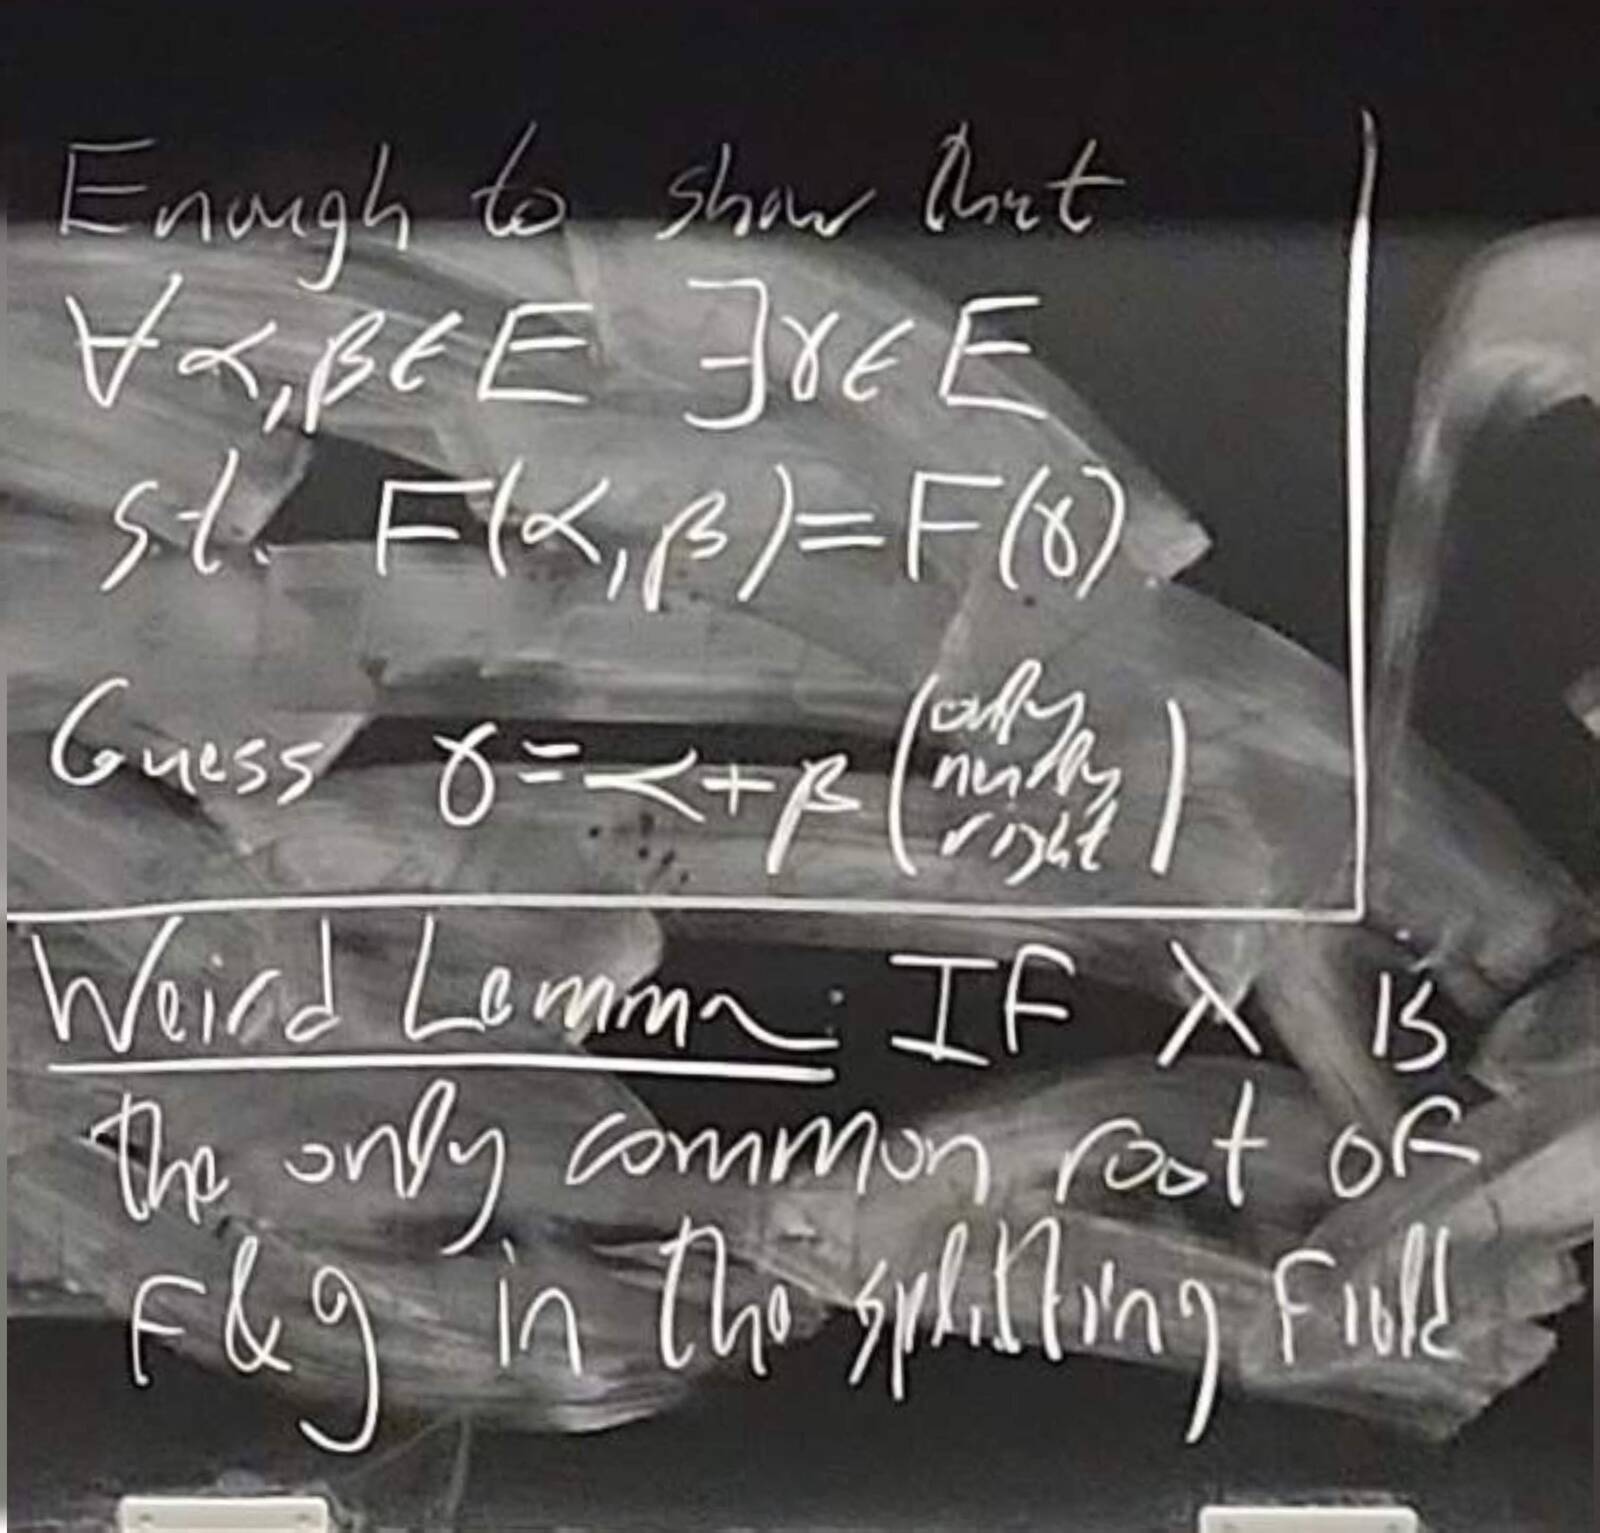 Enough to show that
∀α,β∈E ∃γ∈E
st. F(α,β)=F(γ)
Guess γ=α+β (only nearly right)
Weird Lemma: IF λ is
the only common root of
F & g in the splitting Field